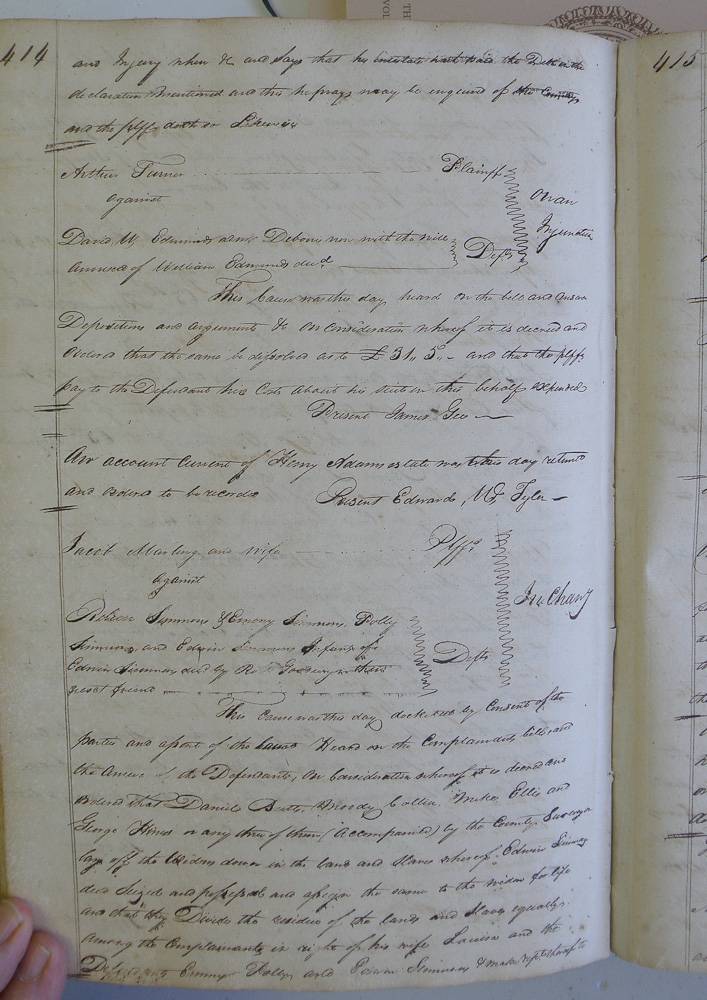 414
and Injury when &c and says that his intestate hath paid the Debt in the
declaration mentioned and this he prays may be enquired of the Country
and the plff doth so Likewise
Arthur Turner Plaintiff
against
On an
Injunction
David W. Edmunds admr Debonis non with the will
annexed of William Edmunds decd Defts
This Cause was this day heard on the bill and answer
Depositions and arguments &c On consideration whereof it is decreed and
ordered that the same be dissolved as to £31,, 5,, - and that the plff
pay to the Defendant his Costs about his suit in this behalf expended
Present James Gee
An account Current of Henry Adams estate was this day returned
and ordered to be recorded Present Edwards, Tyler
Jacob and wife Plffs
against
In Chanj
Simmons & Emmy Simmons, Polly
Simmons and Edwin Simmons Infants of
Edwin Simmons decd by their
next friend Defts
This Cause was this day docketed by Consent of the
parties and apart of the Cause Heard on the Complainants bill and
the answer of the Defendants, On Consideration whereof it is decreed and
ordered that Daniel Moody Collier Ellis and
George Hines or any three of them (Accompanied) by the County Surveyor
lay off the Widows dower in the land and slaves whereof Edwin Simmons
decd Seized and possessed and assign the same to the widow for life
and that they Divide the residue of the lands and slaves equally
among the Complainants in right of his wife Louisa and the
Defendants Emmy Polly and Edwin Simmons & make report thereof to
415